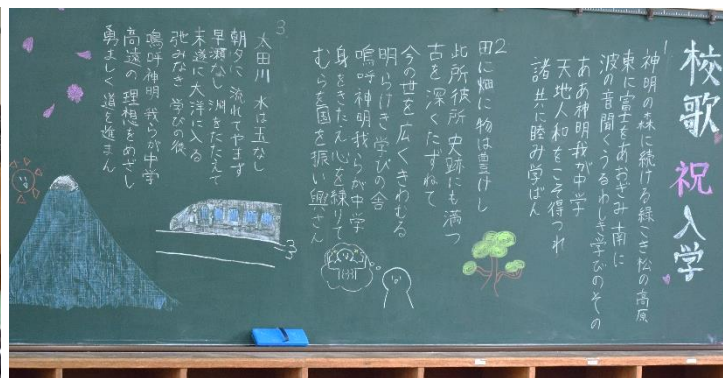 校歌 祝入学
1
神明の森に続ける緑こき松の高原
東に富士をあおぎみ南に
波の音聞くうるわしき学びのその
ああ神明我が中学
天地人和をこそ得つれ
諸共に睦み学ばん
2
田に畑に物は豊けし
此所彼所史跡にも満つ
古を深くたずねて
今の世を広くきわむる
明らけき学びの舎
嗚呼神明我らが中学
身をきたえ心を練りて
むらを国を振い興さん
3
太田川 水は玉なし
朝夕に 流れてやまず
早瀬なし 渕をたたえて
末遂に大洋に入る
弛みなき 学びの後
嗚呼神明 我らが中学
高遠の 理想をめざし
勇ましく 道を進まん